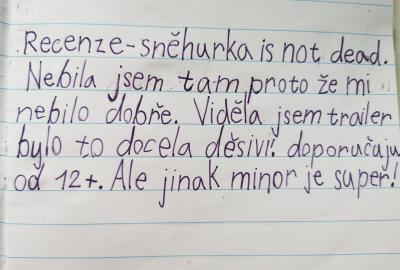 Recenze-sněhurka is not dead.
Nebila jsem tam proto že mi
nebilo dobře. Viděla jsem trailer
bylo to docela děsivi! doporučuju
od 12+. Ale jinak minor je super!